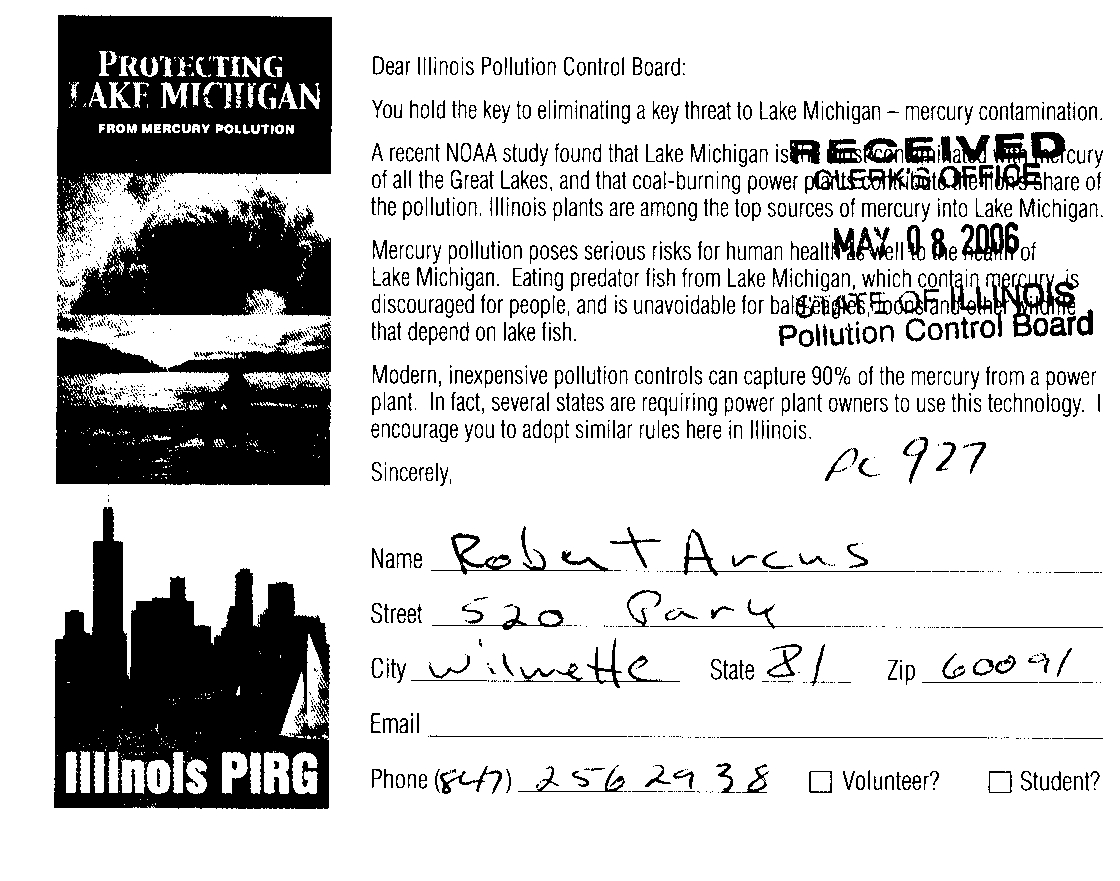 PROTECTING
LAKE MICHIGAN
FROM MERCURY POLLUTION
Illinois PIRG
Dear Illinois Pollution Control Board:
You hold the key to eliminating a key threat to Lake Michigan – mercury contamination.
A recent NOAA study found that Lake Michigan is the most contaminated with mercury
of all the Great Lakes, and that coal-burning power plants contribute the lion's share of
the pollution. Illinois plants are among the top sources of mercury into Lake Michigan.
Mercury pollution poses serious risks for human health as well to the health of
Lake Michigan. Eating predator fish from Lake Michigan, which contain mercury, is
discouraged for people, and is unavoidable for bald eagles, loons and other wildlife
that depend on lake fish.
RECEIVED
CLERK'S OFFICE
MAY 08 2006
STATE OF ILLINOIS
Pollution Control Board
Modern, inexpensive pollution controls can capture 90% of the mercury from a power
plant. In fact, several states are requiring power plant owners to use this technology. I
encourage you to adopt similar rules here in Illinois.
Sincerely,
PC 927
Name Robert Arcus
Street 520 Park
City Wilmette State Zip 60091
Email
Phone (847) 256 2938 Volunteer? Student?